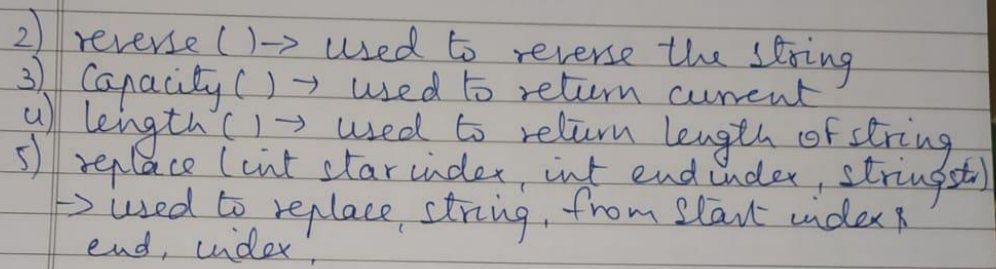 2) reverse ( ) → used to reverse the string
3) Capacity ( ) → used to return current
4) length ( ) → used to return length of string
5) replace (int star index, int end index, string str)
→ used to replace, string, from Start index &
end, index,